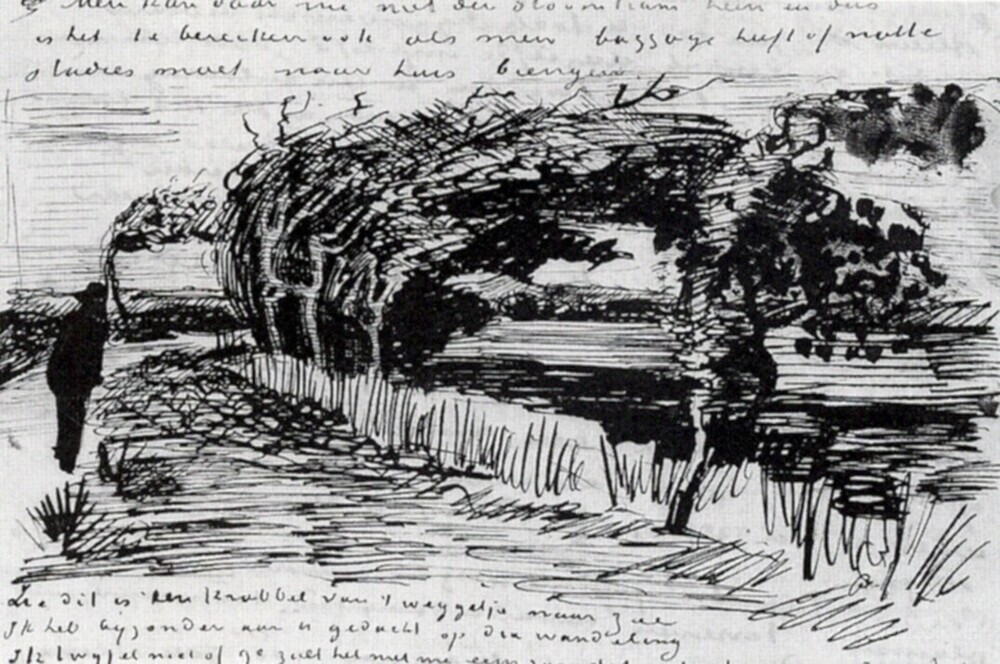 Men kan daar nu met den stoomtram heen en dus
is het te bereiken ook als men baggage heeft of natte
studies moet naar huis brengen.
dit is een krabbel van 't weggetje naar zee
Ik heb byzonder aan U gedacht op die wandeling
Ik twyfel niet of ge zult het met me eens